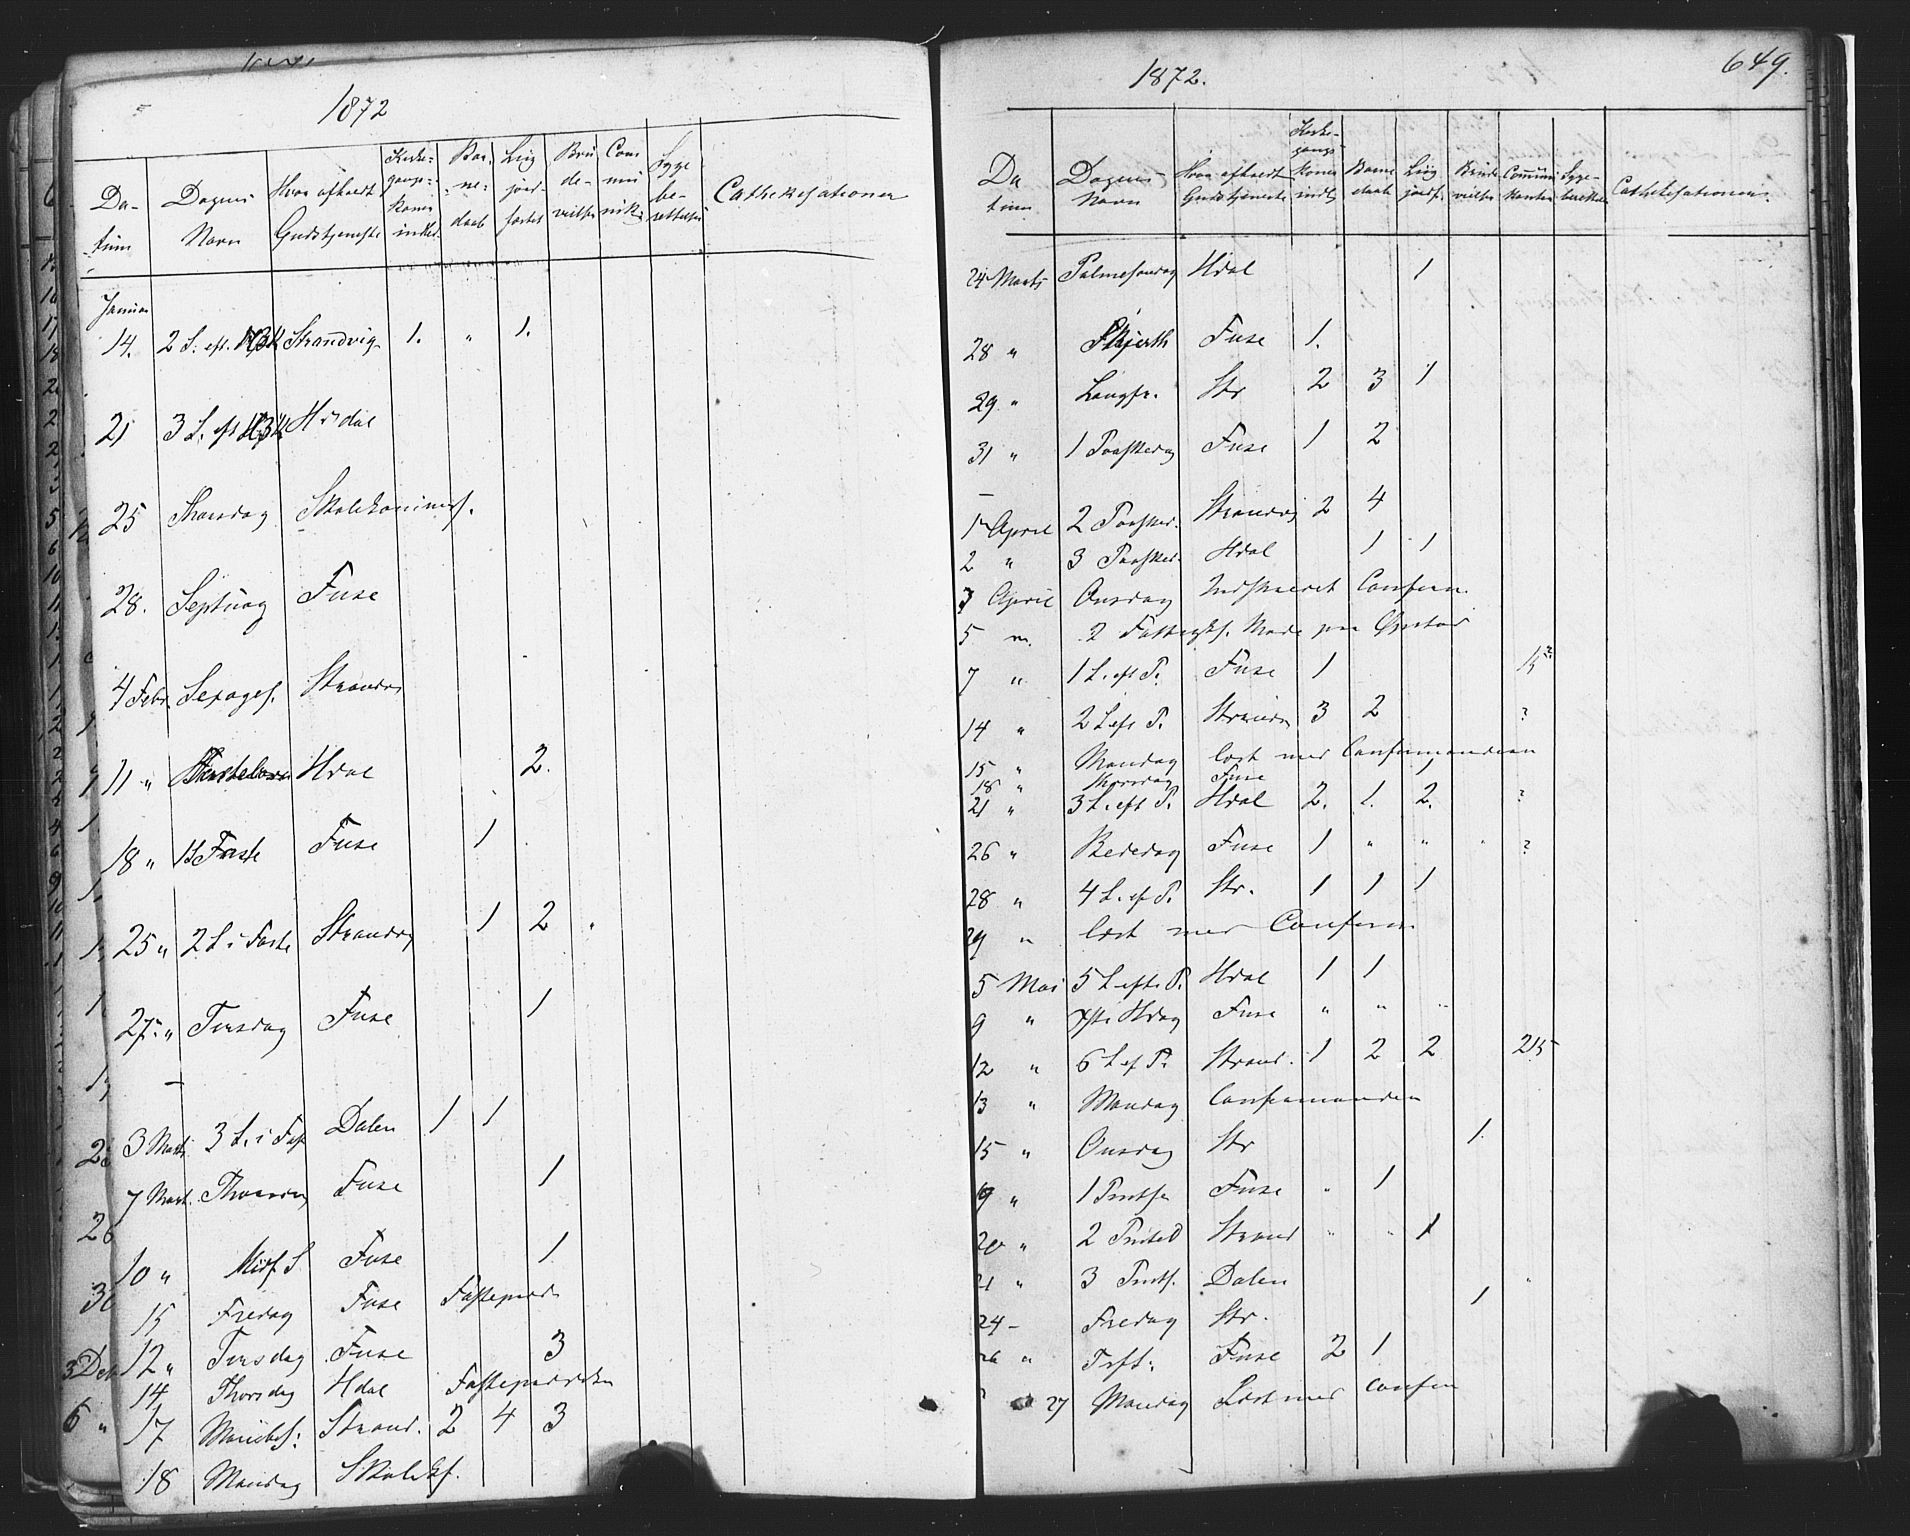 1872
Da-tum | Dagens Navn | Hvor afholdt Gudstjeneste | Kirkegangskoner indled. | Barnedaab | Liig jordfæstet | Brudevielse | Communik. | Sygeberettelse | Cathekisationer
Januar
14. 2 S. eft. H3K Strandvig 1. " 1.
21 3 S. eft H3K H dal
25 Thorsdag Skolekommis.
28. Septuag Fuse
4 Febr. Sexages. Strandv
11 " Fastelavn Hdal 2.
18 " 1 S Faste Fuse 1
25 " 2 S i Faste Strandvg 1 2 "
27 " Tirsdag Fuse 1
3 Marts 3 S. i Fas Dalen 1 1
7 Mart. Thorsdag Fuse 1
10 " Midf S. Fuse 1
15 Fredag Fuse
12 " Tirsdag Fuse 3
14 Thorsdag Hdal
17 Mariæbs: Strand. 2 4 3
18 Mandag Skolekf.
1872.
649.
Da tum | Dagens Navn | Hvor afholdt Gudstjeneste | Kirkegangskoner indl. | Barnedaab | Liig jordf. | Brudevielse | Communikanter | Sygeberettelse | Cathekisationer.
24 Marts Palmesøndag Hdal 1
28 " Skjerth Fuse 1.
29 " Langfr. Str 2 3 1
31 " 1 Paaskedag Fuse 1 2
1 April 2 Paasked. Strandvg 2 4
2 " 3 Paasked. Hdal 1 1
3 April Onsdag Indskrevet Confirm.
5 " 2 Fattigkf. Møde paa
7 " 1 S. eft P. Fuse 1
14 " 2 S eft P. Strandv 3 2 ?
15 " Mandag læst med Confirmanderne
18 " Thorsdag Fuse
21 " 3 S. eft P. Hdal 2. 1. 2. ?
26 " Bededag Fuse 1 " " " ?
28 " 4 S. ef P. Str. 1 1 1
29 " læst med Confirm.
5 Mai 5 S. eft. P. Hdal 1 1
9 " Hdag Fuse " " "
12 " 6 S. ef P. Strand. 1 2 2 215
13 " Mandag Confirmanden
15 " Onsdag Str 1.
19 " 1 Pintse Fuse " 1
20 " 2 Pintsed Strand " " 1
21 " 3 Pints. Dalen "
24 – Fredag Str. 1
26 " Trft. Fuse 2 1
27 Mandag Læst med Confirm